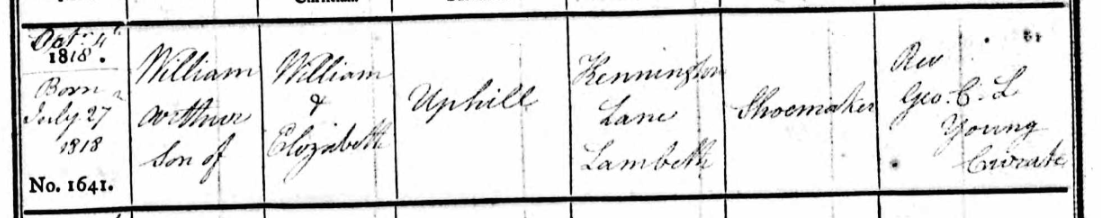 Octr. 4th
1818.
Born
July 27
1818
No. 1641.
William
Arthur
Son of
William
&
Elizabeth
Uphill
Kennington
Lane
Lambeth
Shoemaker
Rev
Geo. C. L
Young
Curate